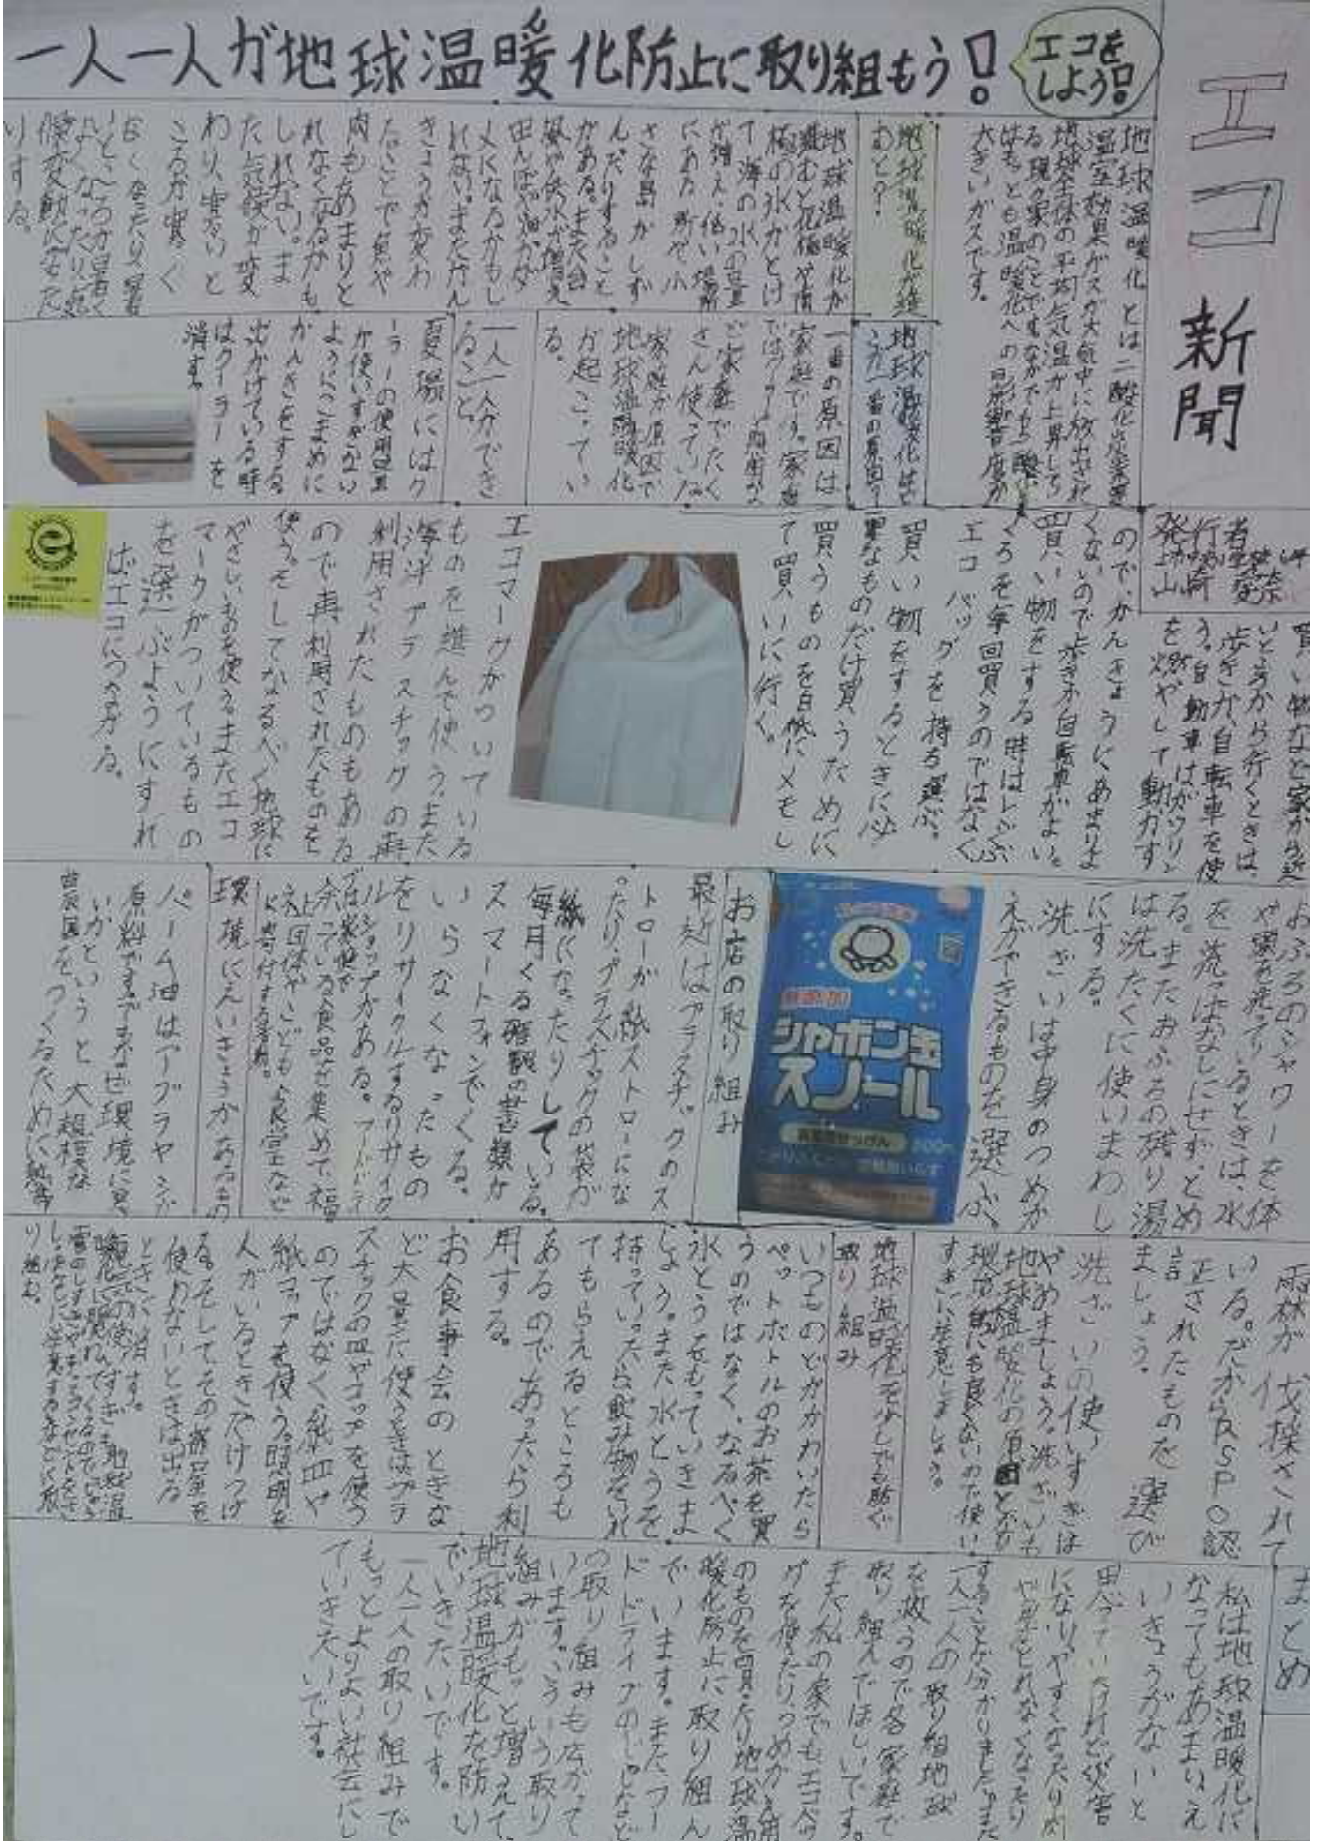 一人一人が地球温暖化防止に取り組もう!
エコを
しよう!
エコ新聞
発行者
地球温暖化とは二酸化炭素
温室効果ガスが大気中に放出され
地球全体の平均気温が上昇して
る現象のことです。なかでも二酸
はもっとも温暖化への影響度が
大きいガスです。
地球温暖化が進
むと?
地球温暖化が
進むと北極や南
極の氷がとけ
て海の水の量
が増え、低い場所
にある町や小
さな島がしず
んだりすること
がある。また台
風や洪水が増え
田んぼや畑がダ
メになるかもし
れない。またかん
きょうが変わ
たことで魚や
肉もあまりと
れなくなるかも
しれない。ま
た気候が変
わり、寒いと
ころが寒く
なくなったり、暑
いところが暑く
なくなったり気
候変動になった
りする。
地球温暖化は
一番の原因は
家庭です。家庭
ではクーラーや
ど家庭でたく
さん使っている
家庭が原因で
地球温暖化
が起こってい
る。
一人一人ができ
ること。
夏場にはク
ーラーの使用量
が使いすぎない
ようにこまめに
かんきをする
出かけている時
はクーラーを
消す。
買い物など家から近
いところから行くときは、
歩きか、自転車を使
う。自動車はガソリン
を燃やして動かす
ので、かんきょうにあまりよ
くないので歩きか自転車がよい。
買い物をする時はレジぶ
くろを毎回買うのではなく
エコバッグを持ち運ぶ。
買い物をするときに必
要なものだけ買うために
買うものを白紙にメモし
て買いに行く。
エコマークがついている
ものを進んで使う。また
海洋プラスチックの再
利用されたものもある
ので再利用されたものを
使う。そしてなるべく地球に
やさしいものを使う。またエコ
マークがついているもの
を選ぶようにすれ
ばエコにつながる。
おふろのシャワーを体
や頭を洗っているときは、水
を流っぱなしにせず、とめ
る。またおふろの残り湯
は洗たくに使いまわし
にする。
洗ざいは中身のつめか
えができるものを選ぶ。
シャボン玉
スノール
お店の取り組み
最近はプラスチックのス
トローが紙ストローにな
ったり、プラスチックの袋が
紙になったりしている。
毎月くる確認の書類が
スマートフォンでくる。
いらなくなったもの
をリサイクルするリサイク
ルショップがある。フードドライ
余っている食品を集めて、福
祉団体やこども食堂など
に寄付する活動。
環境にえいきょうがあるもの
パーム油はアブラヤシが
原料です。でもなぜ環境に悪
いかというと大規模な
農園をつくるために熱帯
雨林が伐採されて
いる。だからRSPO認
証されたものを選び
ましょう。
洗ざいの使いすぎは
やめましょう。洗ざいも
地球温暖化の原因となり
地球にも良くないので使い
すぎに注意しましょう。
地球温暖化を少しでも防ぐ
取り組み
いつものどがかわいたら
ペットボトルのお茶を買
うのではなく、なるべく
水とうをもっていきま
しょう。また水とうを
持っていったら飲み物をいれ
てもらえるところも
あるのであったら利
用する。
お食事会のときな
ど大量に使うときはプラ
スチックの皿やコップを使う
のではなく、紙皿や
紙コップを使う。照明を
人がいるときだけつけ
る。そしてその部屋を
使わないときは出る
ときに消す。
り組む。
まとめ
私は地球温暖化に
なってもあまりえ
いきょうがないと
思っていたけど災害
になりやすくなったり魚
や肉がとれなくなったり
することが分かりました。また
一人一人の取り組地球
を救うので各家庭で
取り組んでほしいです。
また私の家でもエコバッ
グを使たりつめかえ用
のものを買ったり地球温
暖化防止に取り組ん
でいます。またフー
ドドライブのしゃなど
の取り組みも広がって
います。こういう取り
組みがもっと増えて、
地球温暖化を防い
でいきたいです。
一人一人の取り組みで
もっとよりよい社会にし
ていきたいです。